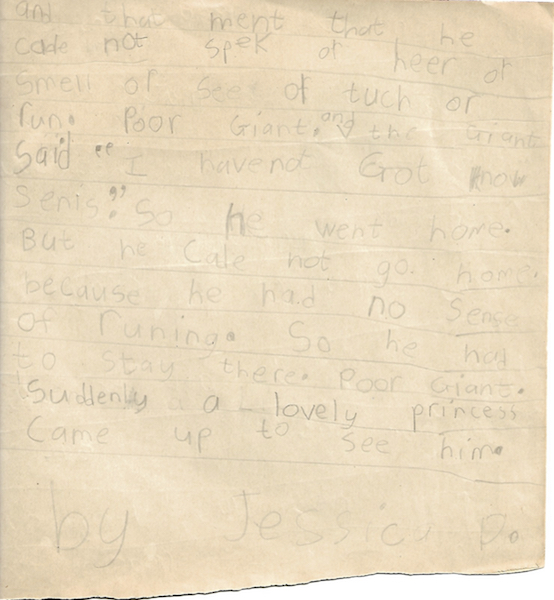 and that ment that he
cade not spek or heer or
smell or see or tuch or
run. Poor Giant. and the Giant
Said "I have not Got now
Senis." So he went home.
But he Cale not go home.
because he had no Sence
of runing. So he had
to stay there. Poor Giant.
Suddenly a lovely princess
Came up to see him.
by Jessica D.